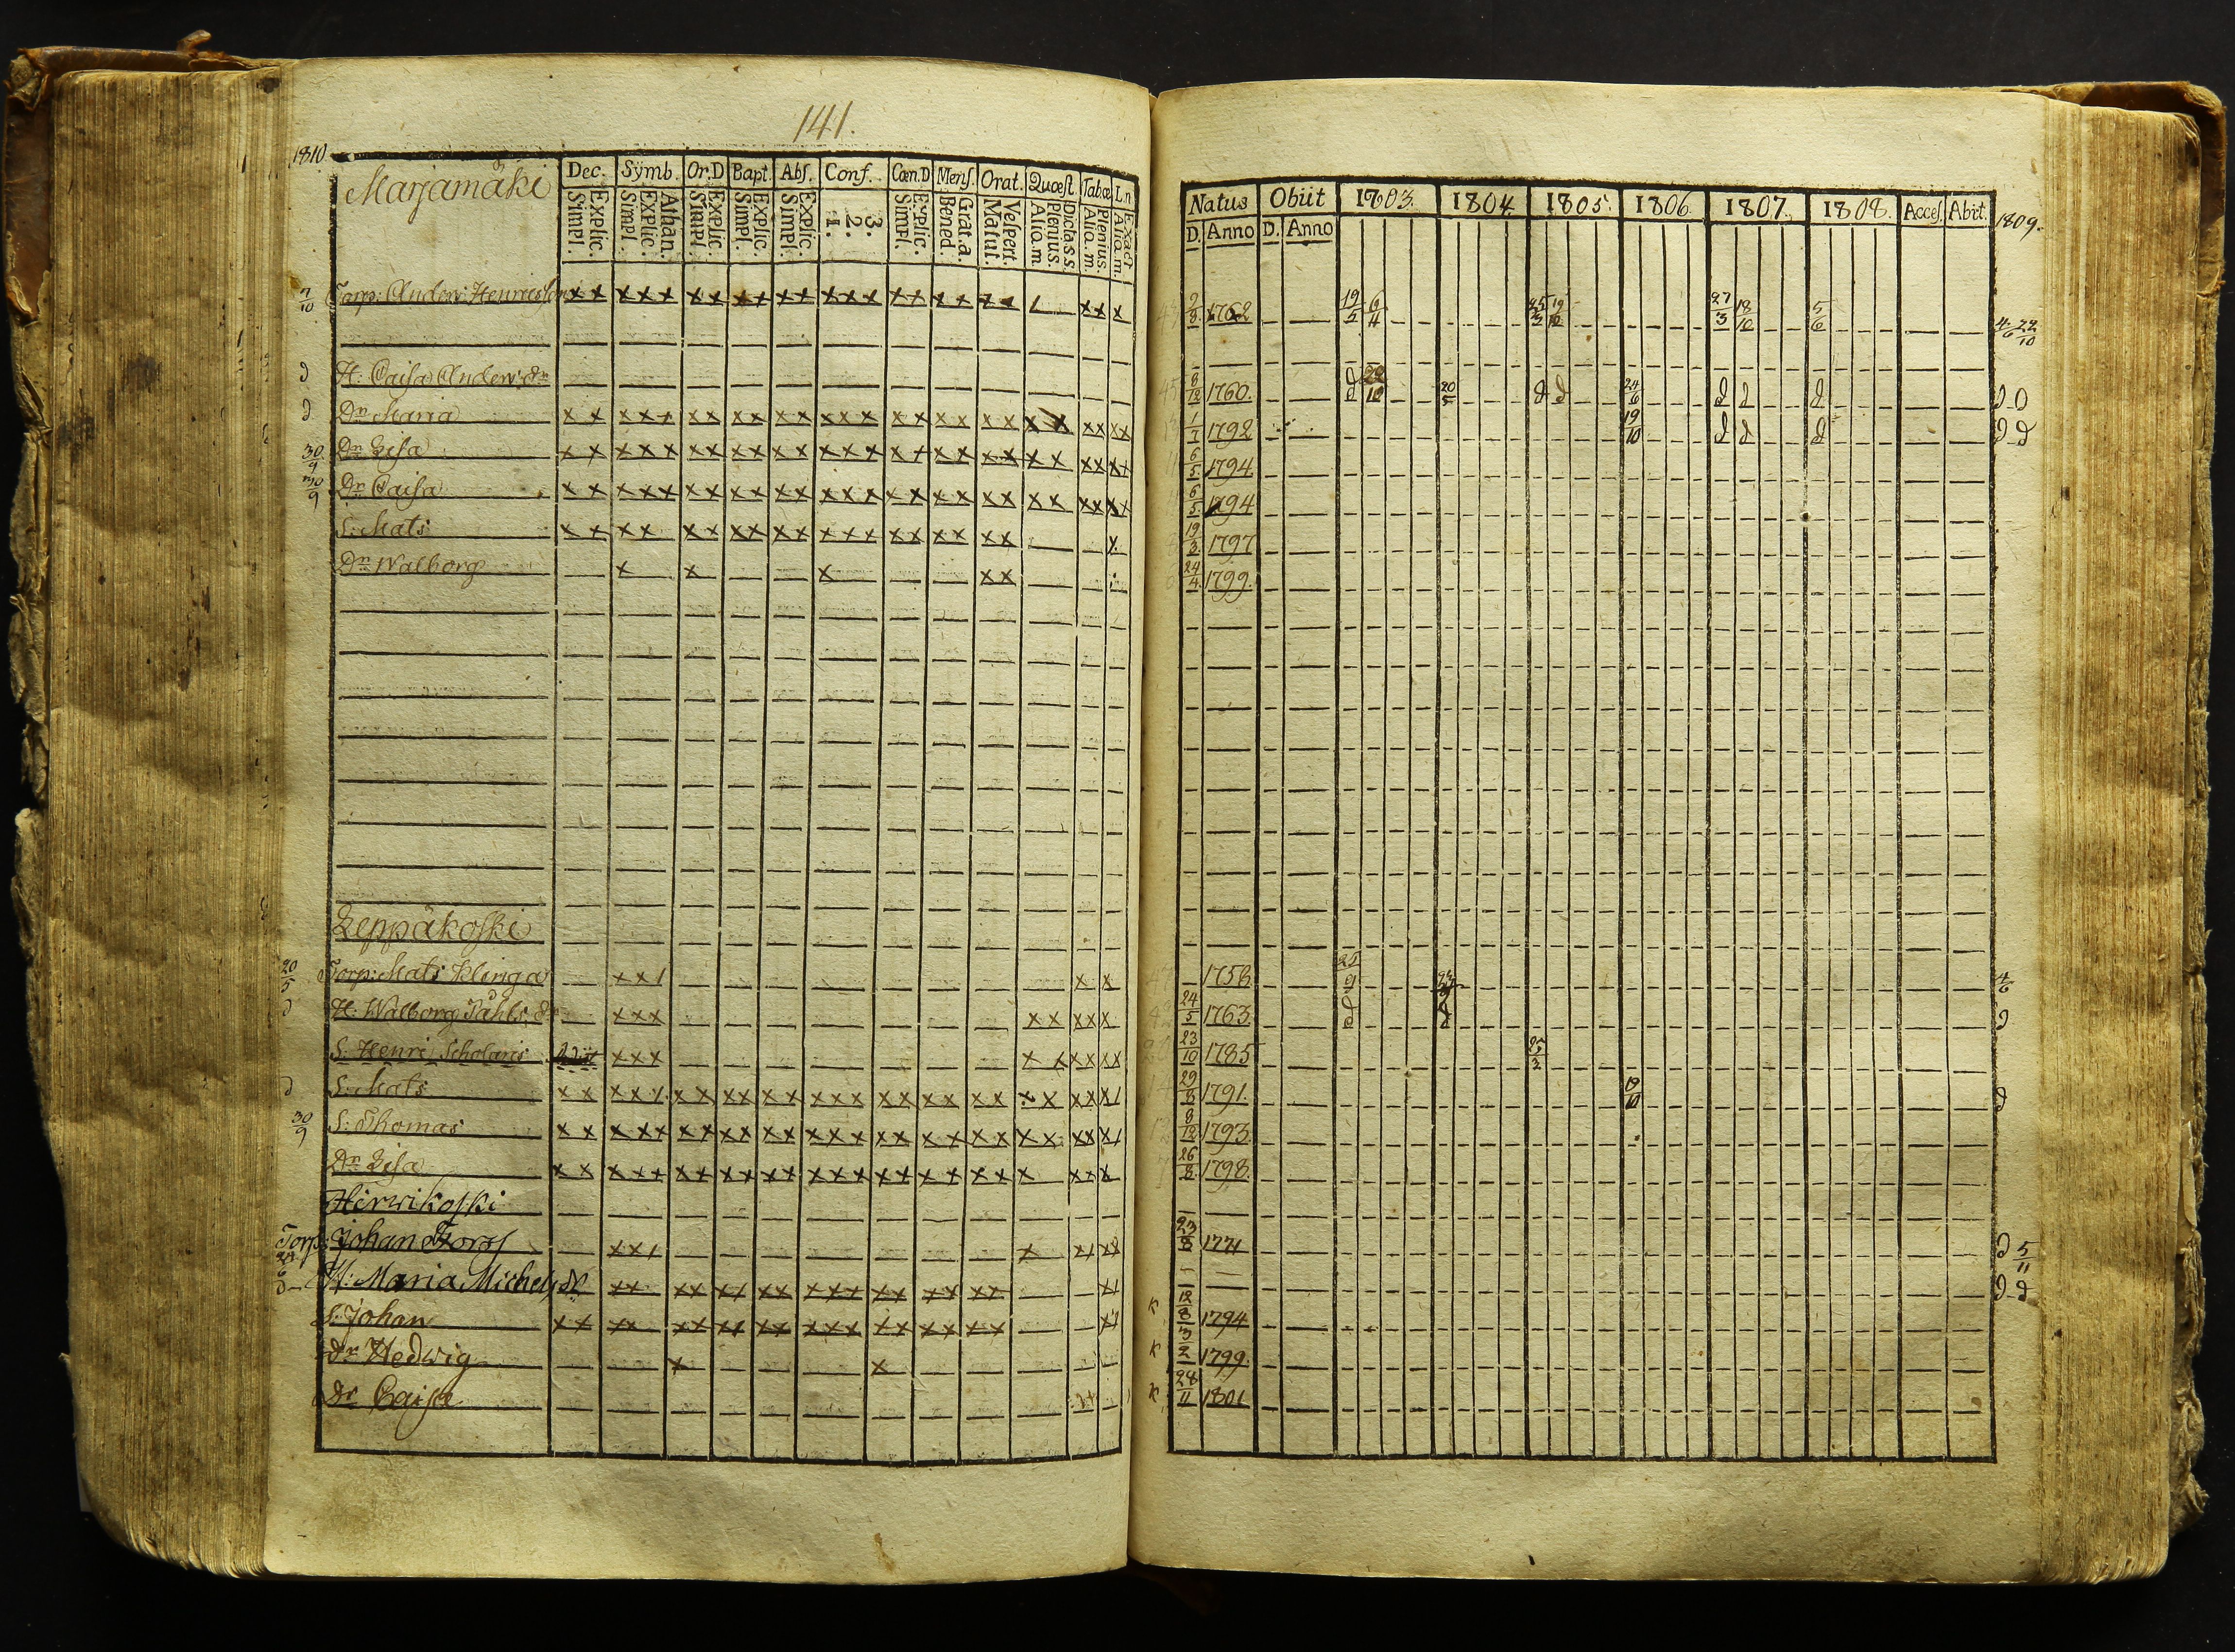 141.
1810.
Marjamäki
Dec. Sÿmb. Or.D Bapt. Abſ. Conf. Cœn.D Menſ. Orat. Quœſt. Tabœ L.n
Simpl. Explic. Simpl. Explic. Athan. Simpl. Explic. Simpl. Explic. Simpl. Explic. 1. 2. 3. Simpl. Explic. Bened. Grat.a. Matut. Veſpert. Alio.m. Plenius. Dicta.s.s. Alio.m. Plenius. Alia.m. Exact
7/10 Torp: Anders Henricsson x x x x x x x x x x x x x x x x x x x x x x x
d H: Caisa Anders dr
d Dr Maria x x x x x x x x x x x x x x x x x x x x x x x x x
30/9 Dr Lisa x x x x x x x x x x x x x x x x x x x x x x x x x
30/9 Dr Caisa x x x x x x x x x x x x x x x x x x x x x x x x x
S: Mats x x x x x x x x x x x x x x x x x x x x
Dr Walborg x x x x x
Leppäkoski
20/5 Torp: Mats Klinga x x / x x
d H: Walborg Påhls dr x x x x x x x x
S. Henric Scholaris x x x x x x x x x
d S: Mats x x x x x x x x x x x x x x x x x x x x x x x x /
30/9 S: Thomas x x x x x x x x x x x x x x x x x x x x x x x x /
Dr Lisa x x x x x x x x x x x x x x x x x x x x x x x
Hirwikoski
Torp: Johan Fors x x x x x x x x
d H: Maria Michels dr x x x x x x x x x x x x x x x x x x
S: Johan x x x x x x x x x x x x x x x x x x x x
dr Hedwig x x
dr Caisa
Natus Obiit 1803. 1804. 1805. 1806. 1807. 1808. Acceſ. Abit. 1809.
D. Anno D. Anno
9/8 1762 19/5 6/11 25/3 19/10 27/3 18/10 5/6 4/6 22/10
8/12 1760. d d 20/5 d d 24/6 d d d d d
1/7 1792 19/10 d d d d d
6/5 1794
6/5 1794
19/3 1797
24/4 1799.
1756 25/9 4/6
24/5 1763 d d d
23/10 1785 25/3
29/8 1791. 19/10 d
8/12 1793.
26/8 1798.
23/8 1771 d 5/11
d d
K 12/8 1794
K 3/2 1799.
K 28/11 1801